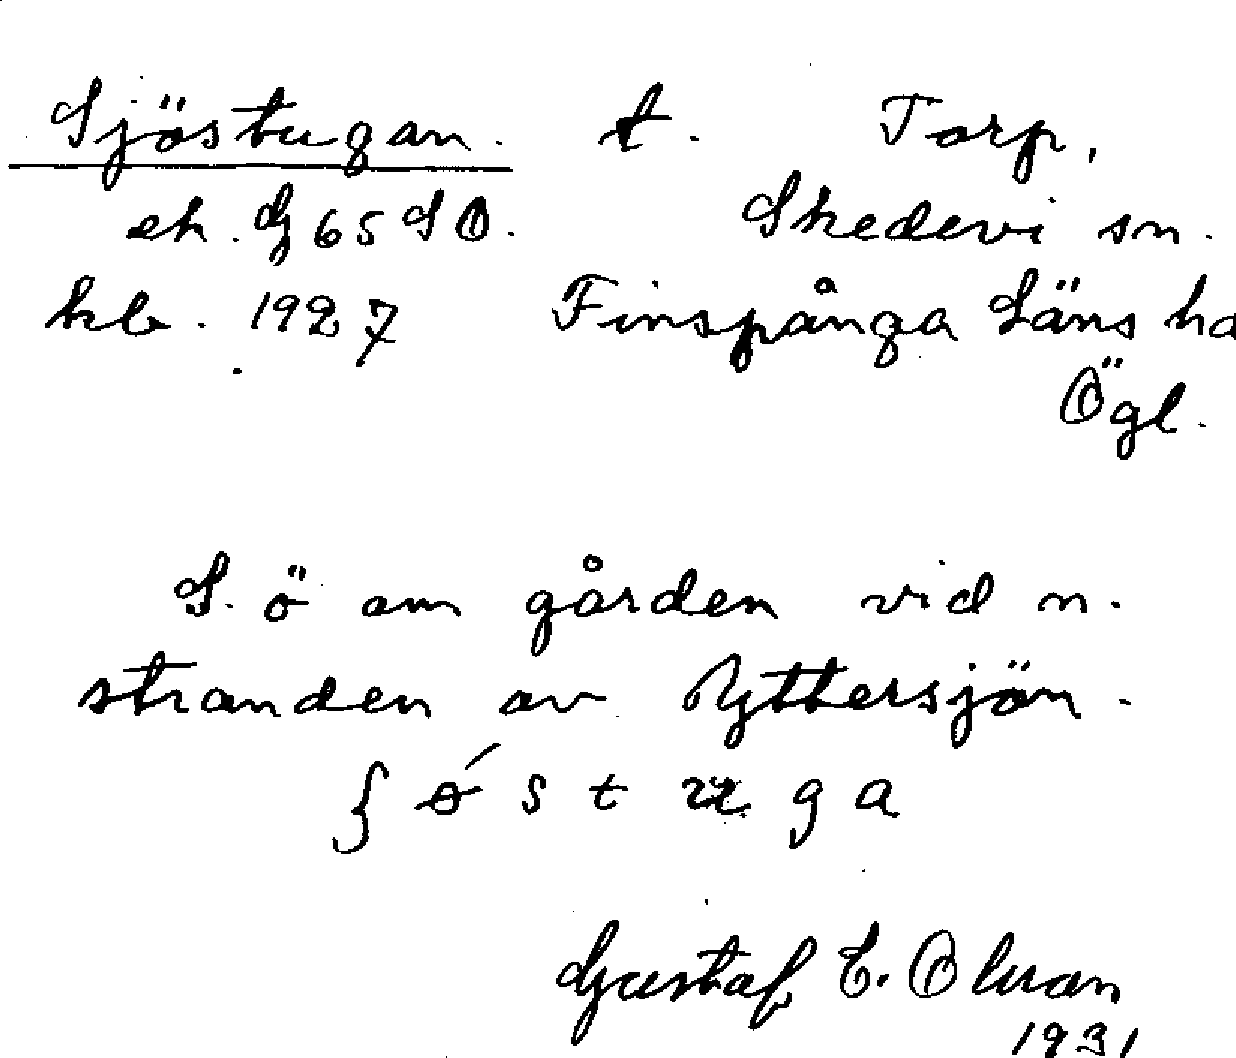 Sjöstugan. t. Torp,
ek. G 65 SO. Skedevi sn.
kb. 1927 Finspånga Läns hd
Ögl.
S. ö om gården vid n.
stranden av Yttersjön.
Gustaf E. Olson
1931